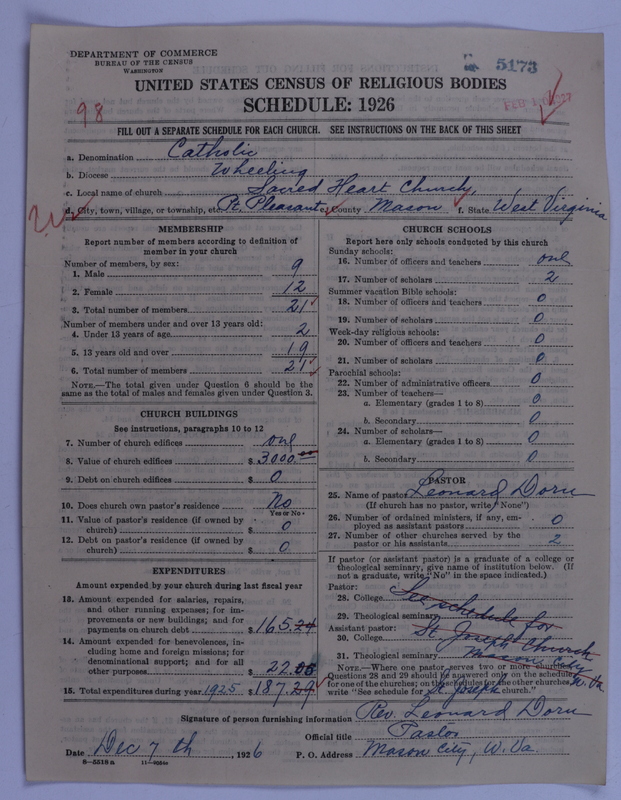 DEPARTMENT OF COMMERCE
BUREAU OF THE CENSUS
WASHINGTON
5173
UNITED STATES CENSUS OF RELIGIOUS BODIES
SCHEDULE: 1926
98
FEB
FILL OUT A SEPARATE SCHEDULE FOR EACH CHURCH. SEE INSTRUCTIONS ON THE BACK OF THIS SHEET
a. Denomination Catholic
b. Diocese Wheeling
c. Local name of church Sacred Heart Church,
d. City, town, village, or township, etc. Pt. Pleasant e. County Mason f. State West Virginia
MEMBERSHIP
Report number of members according to definition of
member in your church
Number of members, by sex:
1. Male 9
2. Female 12
3. Total number of members 21
Number of members under and over 13 years old:
4. Under 13 years of age 2
5. 13 years old and over 19
6. Total number of members 21
NOTE.—The total given under Question 6 should be the
same as the total of males and females given under Question 3.
CHURCH BUILDINGS
See instructions, paragraphs 10 to 12
7. Number of church edifices one
8. Value of church edifices $ 3000.00
9. Debt on church edifices $ 0
10. Does church own pastor's residence No
Yes or No
11. Value of pastor's residence (if owned by
church) $ 0
12. Debt on pastor's residence (if owned by
church) $ 0
EXPENDITURES
Amount expended by your church during last fiscal year
13. Amount expended for salaries, repairs,
and other running expenses; for im-
provements or new buildings; and for
payments on church debt $ 165.24
14. Amount expended for benevolences, in-
cluding home and foreign missions; for
denominational support; and for all
other purposes 22.05
15. Total expenditures during year 1925 $ 187.29
CHURCH SCHOOLS
Report here only schools conducted by this church
Sunday schools:
16. Number of officers and teachers one
17. Number of scholars 2
Summer vacation Bible schools:
18. Number of officers and teachers 0
19. Number of scholars 0
Week-day religious schools:
20. Number of officers and teachers 0
21. Number of scholars 0
Parochial schools:
22. Number of administrative officers 0
23. Number of teachers—
a. Elementary (grades 1 to 8) 0
b. Secondary 0
24. Number of scholars—
a. Elementary (grades 1 to 8) 0
b. Secondary 0
PASTOR
25. Name of pastor Leonard Dorn
(If church has no pastor, write "None")
26. Number of ordained ministers, if any, em-
ployed as assistant pastors 0
27. Number of other churches served by the
pastor or his assistants 2
If pastor (or assistant pastor) is a graduate of a college or
theological seminary, give name of institution below. (If
not a graduate, write "No" in the space indicated.)
Pastor:
28. College See schedule for
29. Theological seminary
Assistant pastor: St Joseph Church
30. College
31. Theological seminary Mason City W. Va
NOTE.—Where one pastor serves two or more churches,
Questions 28 and 29 should be answered only on the schedule
for one of the churches; on the schedules for the other churches
write "See schedule for St. Joseph church."
Signature of person furnishing information Rev. Leonard Dorn
Official title Pastor
Date Dec 7 th, 1926 P. O. Address Mason City, W. Va.
8—5518a